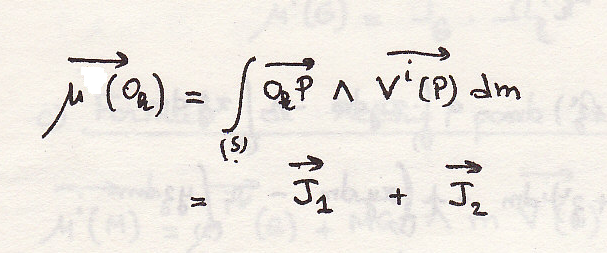 μ⃗(O_R) = ∫_(S) O_RP⃗ ∧ V^i(P)⃗ dm
= J⃗_1 + J⃗_2